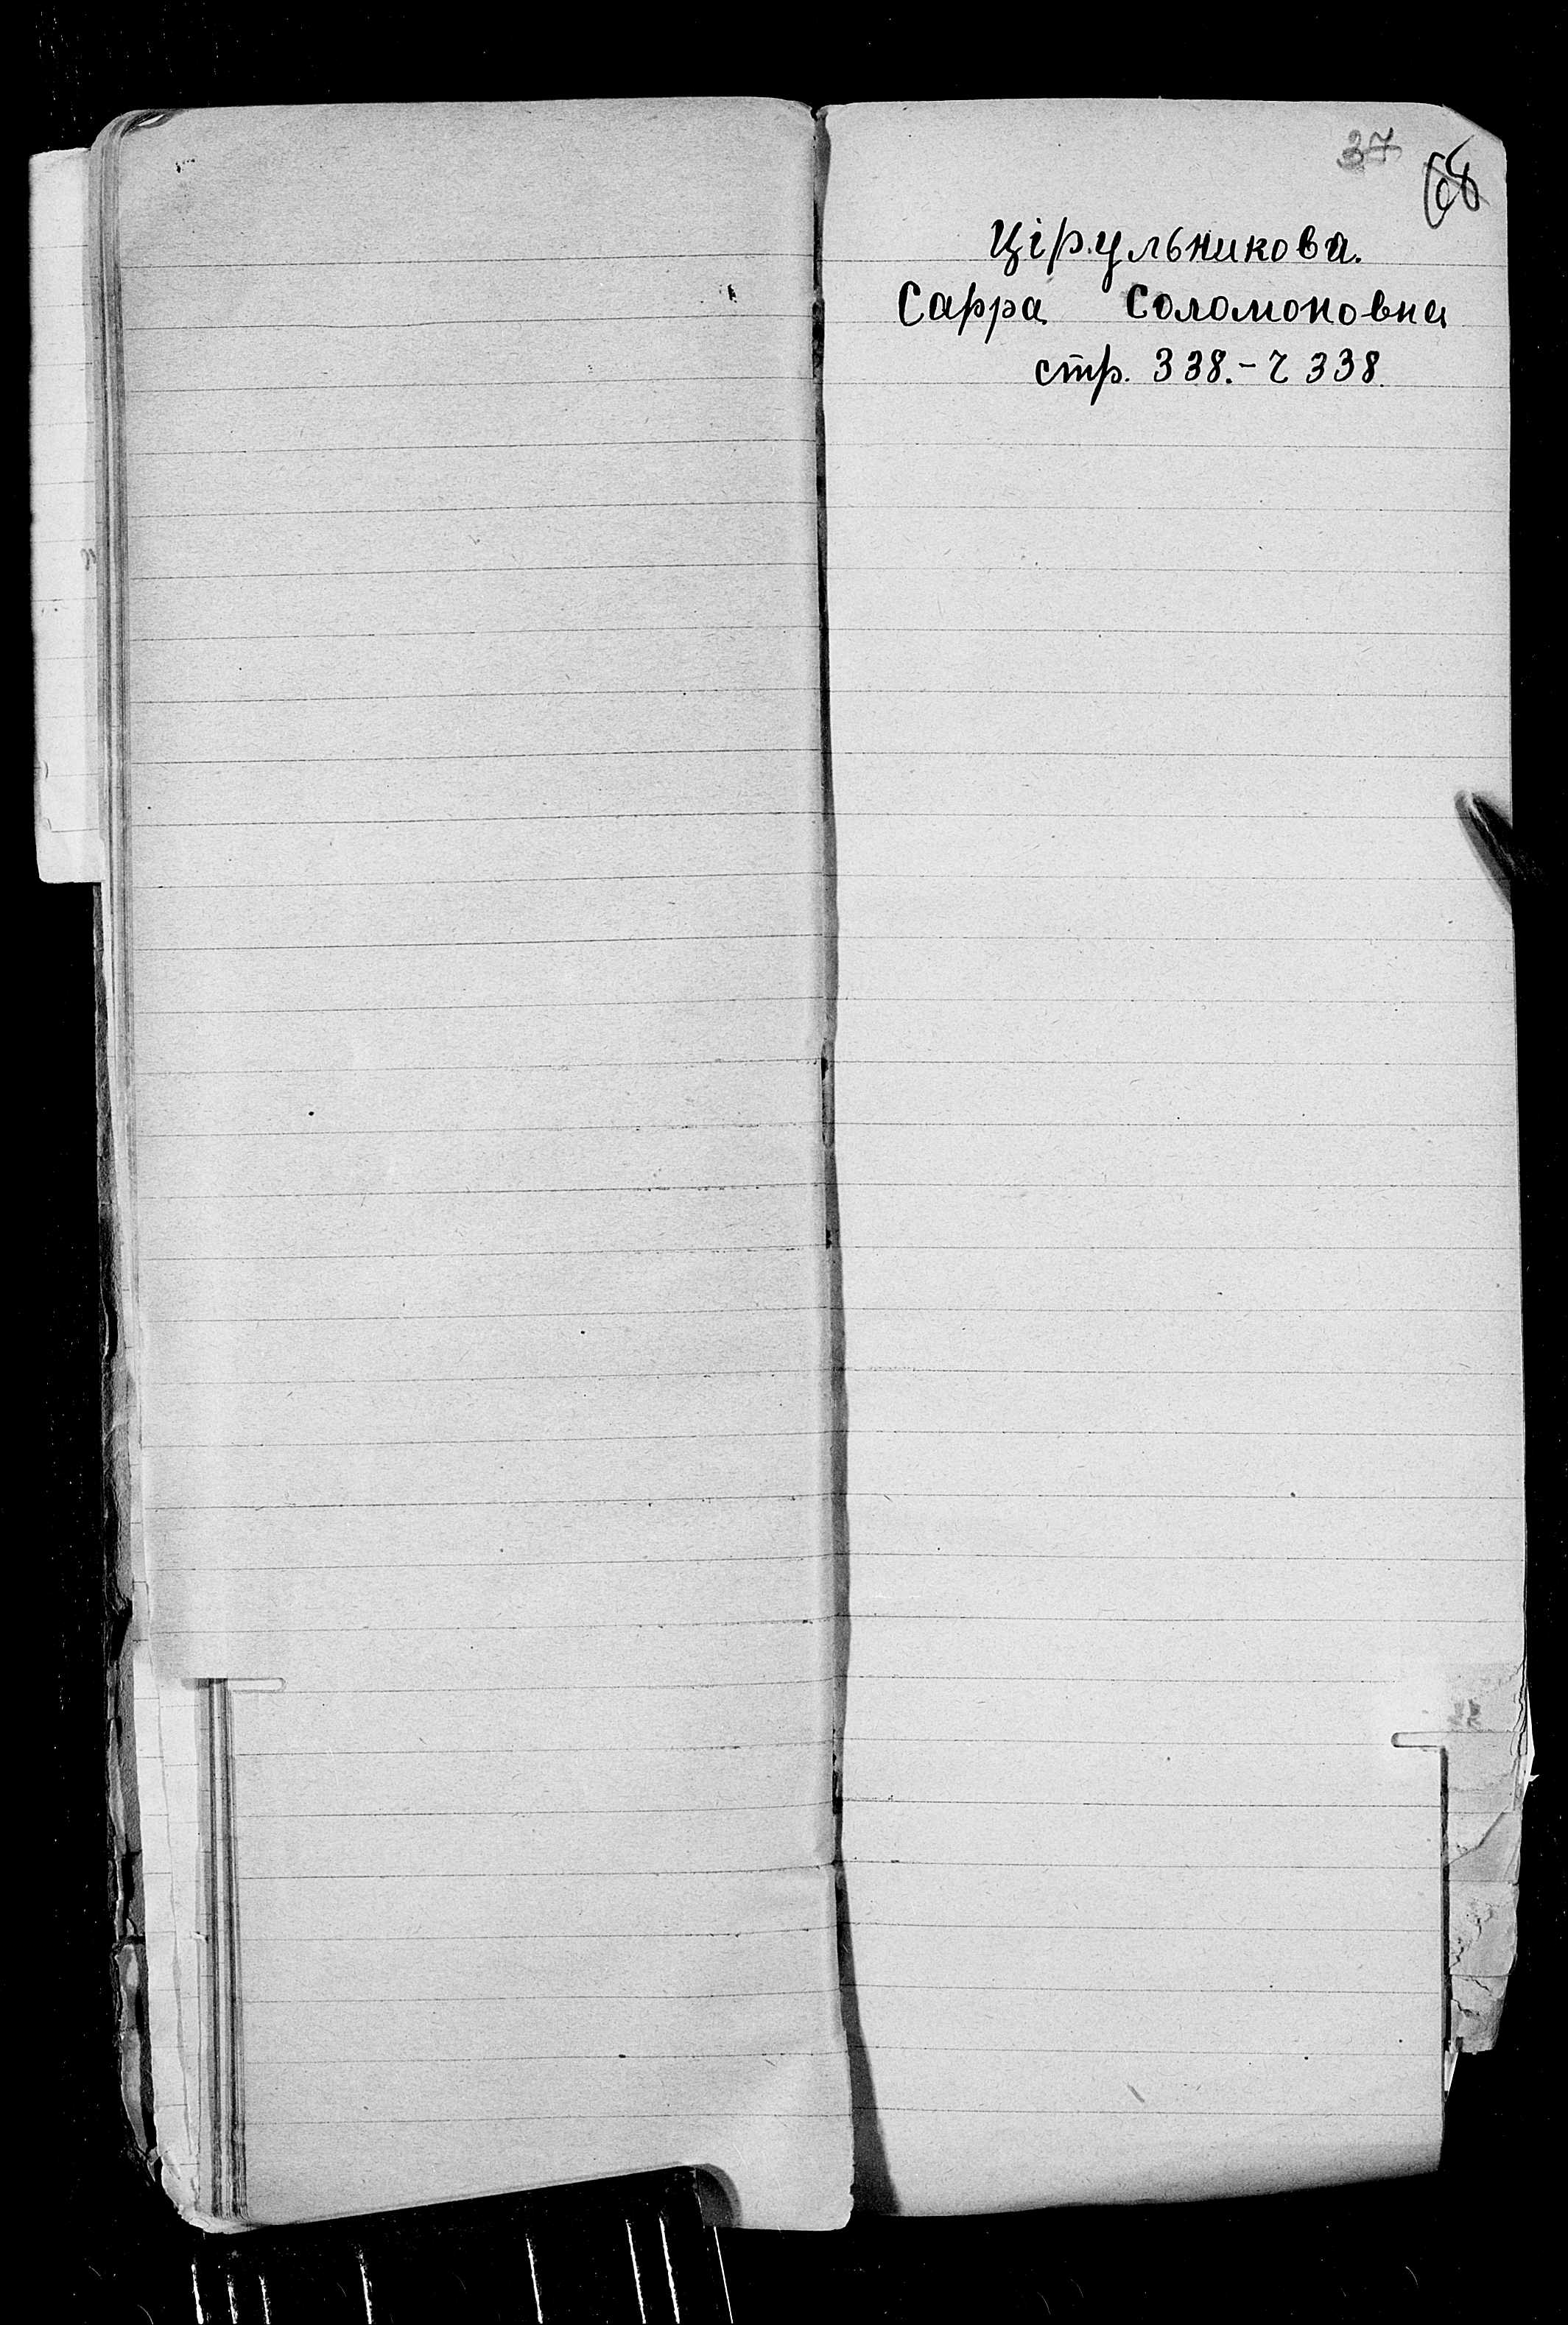 37
68
Цірульникова.
Сарра Соломоновна
стр. 338.- г 338.